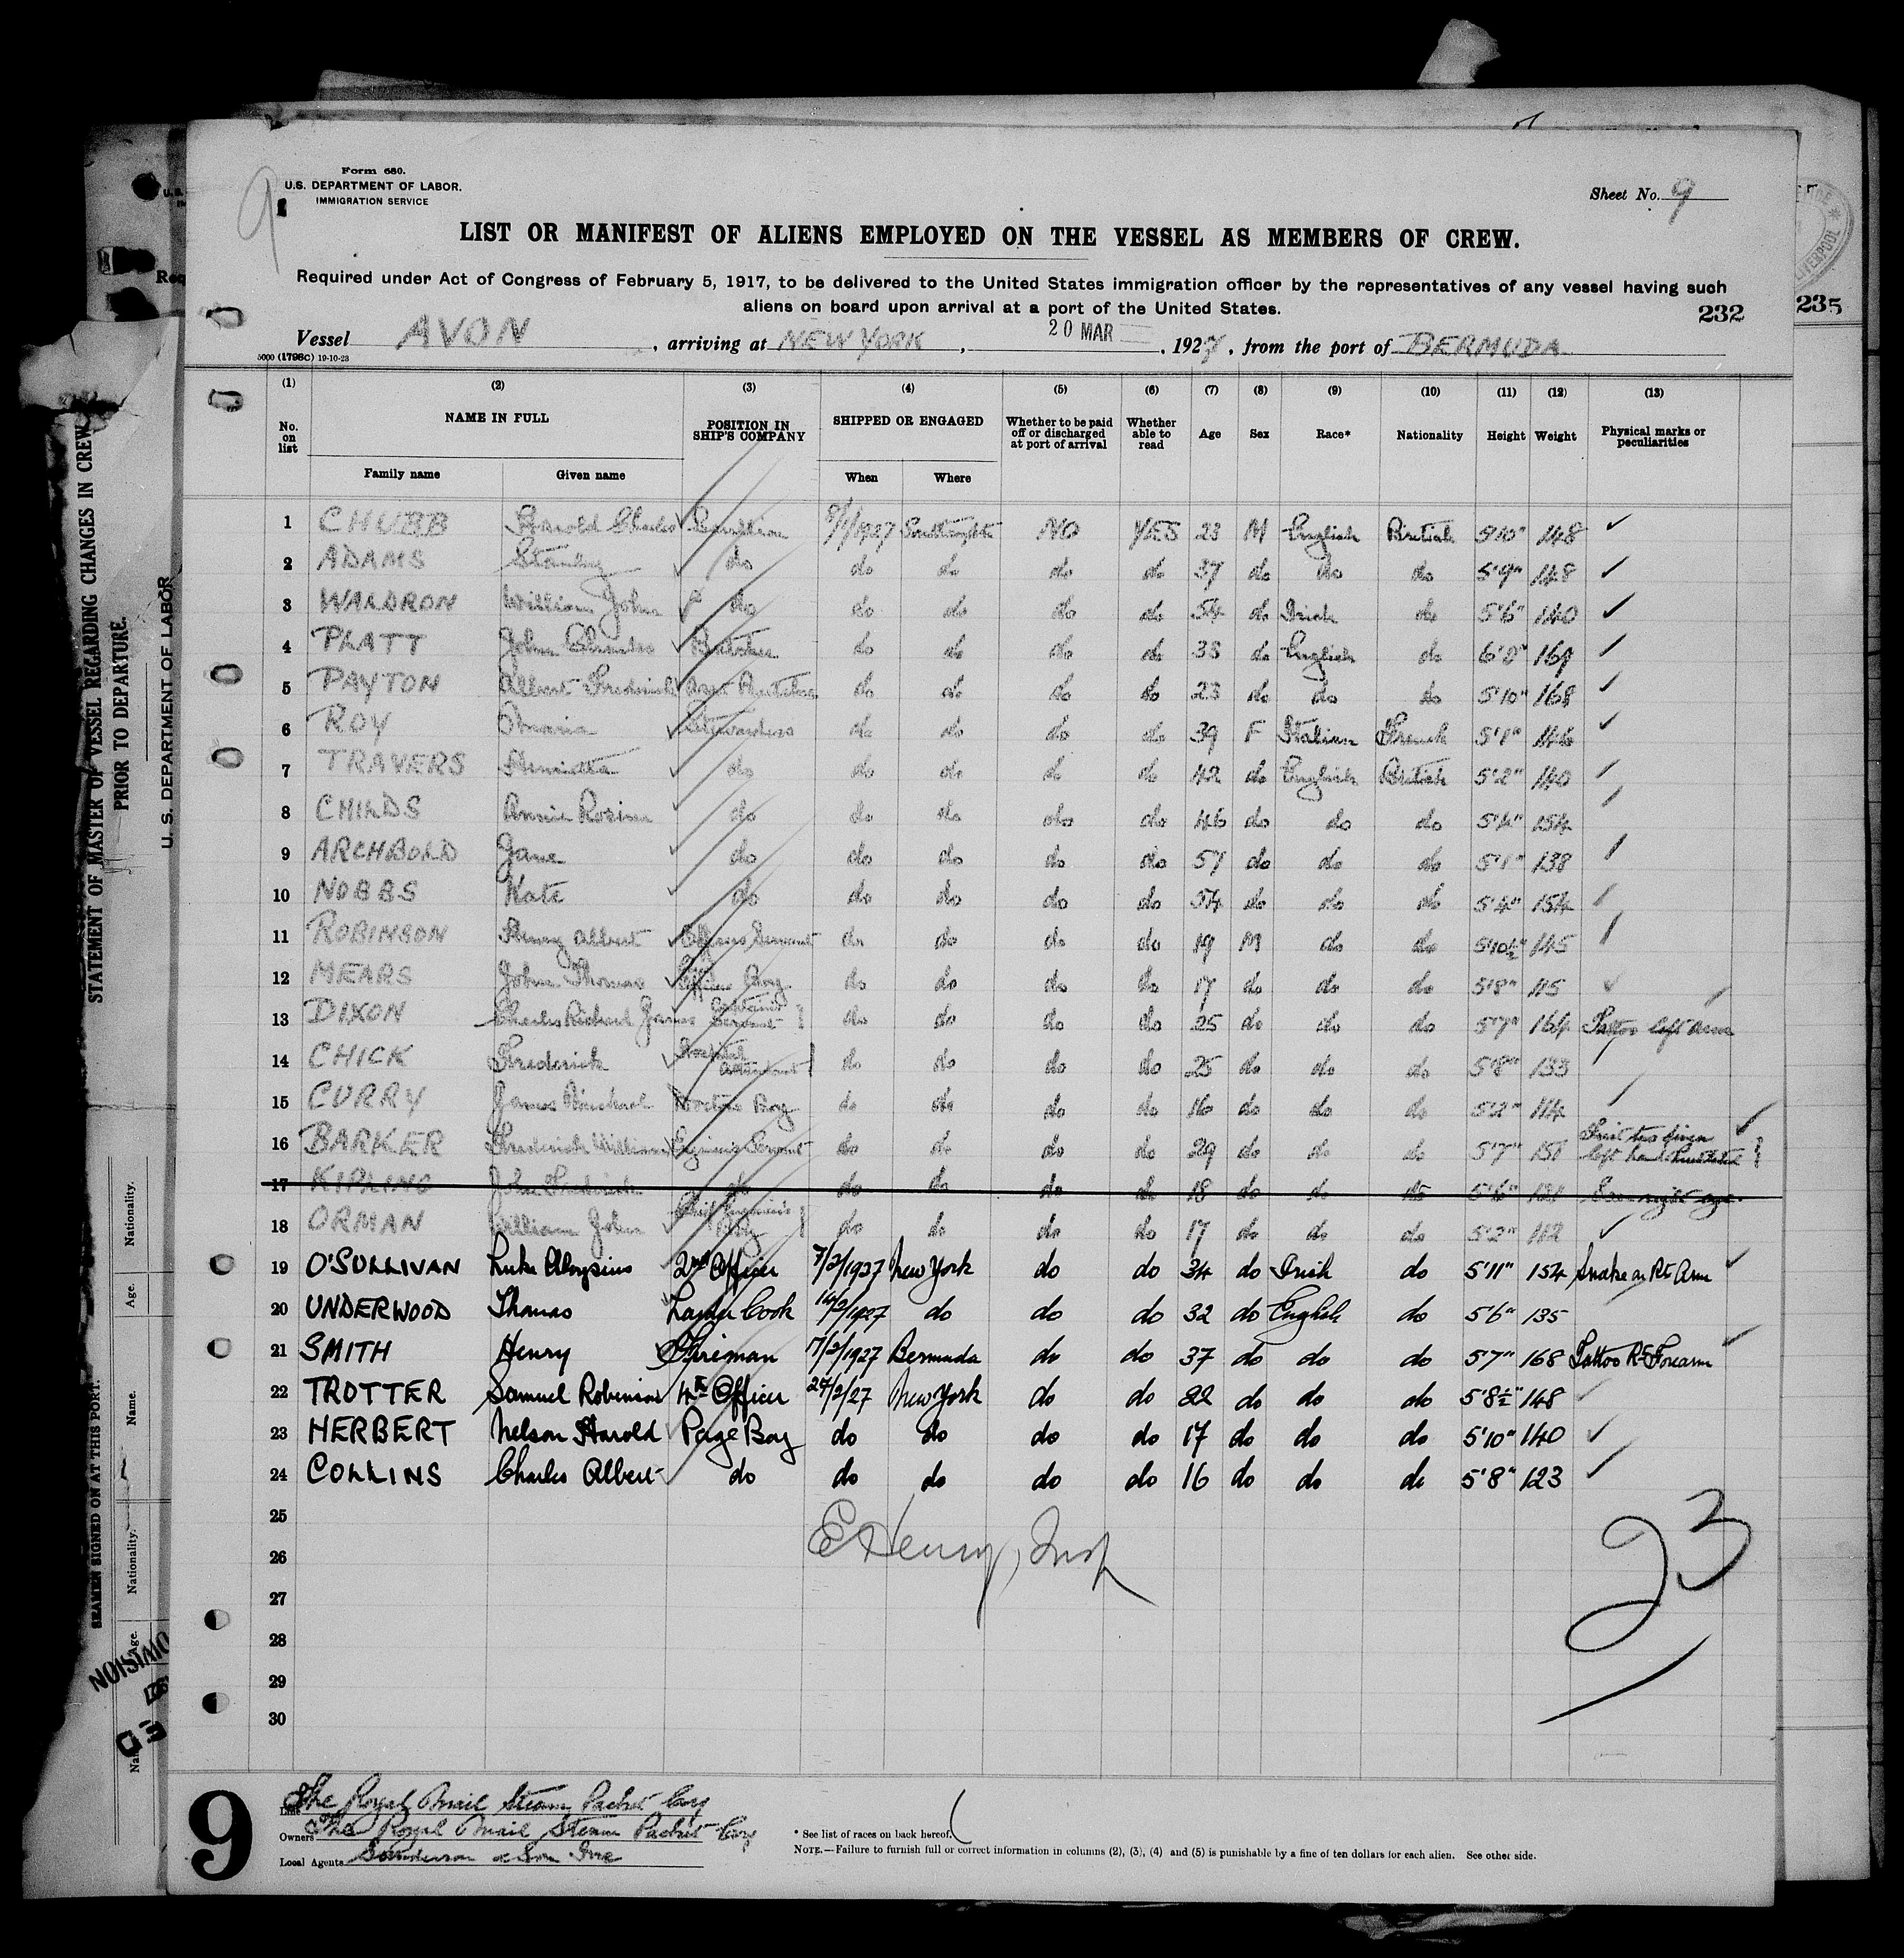 Form 680.
U.S. DEPARTMENT OF LABOR.
IMMIGRATION SERVICE
9
Sheet No. 9
LIST OR MANIFEST OF ALIENS EMPLOYED ON THE VESSEL AS MEMBERS OF CREW.
Required under Act of Congress of February 5, 1917, to be delivered to the United States immigration officer by the representatives of any vessel having such
aliens on board upon arrival at a port of the United States.
232
235
Vessel AVON, arriving at NEW YORK, 20 MAR, 1927, from the port of BERMUDA
5000 (1798C) 19-10-23
(1) (2) (3) (4) (5) (6) (7) (8) (9) (10) (11) (12) (13)
No. on list NAME IN FULL POSITION IN SHIP'S COMPANY SHIPPED OR ENGAGED Whether to be paid off or discharged at port of arrival Whether able to read Age Sex Race* Nationality Height Weight Physical marks or peculiarities
Family name Given name When Where
1 CHUBB Harold Charles Scullion 8/1/1927 Southampton NO YES 23 M English British 5'10" 148 ✓
2 ADAMS Stanley do do do do do 37 do do do 5'9" 148 ✓
3 WALDRON William John do do do do do 54 do Irish do 5'6" 140 ✓
4 PLATT John Charles Butcher do do do do 38 do English do 6'0" 169 ✓
5 PAYTON Albert Frederick Asst Butcher do do do do 23 do do do 5'10" 168 ✓
6 ROY Maria Stewardess do do do do 39 F Italian French 5'1" 146 ✓
7 TRAVERS Henrietta do do do do do 42 do English British 5'2" 140
8 CHILDS Annie Rosina do do do do do 46 do do do 5'4" 154
9 ARCHBOLD Jane do do do do do 57 do do do 5'1" 138
10 NOBBS Kate do do do do do 54 do do do 5'4" 154
11 ROBINSON Henry Albert Officers Servant do do do do 19 M do do 5'10½" 145
12 MEARS John Thomas Officers Boy do do do do 17 do do do 5'8" 115 ✓
13 DIXON Charles Richard James Captains Servant do do do do 25 do do do 5'7" 164 Tattoo left arm
14 CHICK Frederick Hospital Attendant do do do do 25 do do do 5'8" 133
15 CURRY James Michael Doctors Boy do do do do 16 do do do 5'2" 114
16 BARKER Frederick William Engineers Servant do do do do 29 do do do 5'7" 151 First two fingers left hand
17 KIPLING John Frederick do do do do do 18 do do do 5'6" 121 Scar right eye.
18 ORMAN William John Chief Engineers Boy do do do do 17 do do do 5'2" 112 ✓
19 O'SULLIVAN Luke Aloysius 2nd Officer 7/2/1927 New York do do 34 do Irish do 5'11" 154 Snake on Rt Arm ✓
20 UNDERWOOD Thomas Larder Cook 14/2/1927 do do do 32 do English do 5'6" 135
21 SMITH Henry Fireman 17/2/1927 Bermuda do do 37 do do do 5'7" 168 Tattoo Rt Forearm ✓
22 TROTTER Samuel Robinson 4th Officer 24/2/27 New York do do 22 do do do 5'8½" 148 ✓
23 HERBERT Nelson Harold Page Boy do do do do 17 do do do 5'10" 140 ✓
24 COLLINS Charles Albert do do do do do 16 do do do 5'8" 123 ✓
25
26
27
28
29
30
E Henry, Insp
23
9
Line The Royal Mail Steam Packet Coy
Owners The Royal Mail Steam Packet Coy
Local Agents Sanderson & Son Inc
* See list of races on back hereof.
NOTE.—Failure to furnish full or correct information in columns (2), (3), (4) and (5) is punishable by a fine of ten dollars for each alien. See other side.
STATEMENT OF MASTER OF VESSEL REGARDING CHANGES IN CREW
PRIOR TO DEPARTURE.
U. S. DEPARTMENT OF LABOR
SEAMEN SIGNED ON AT THIS PORT.
Nationality.
Age.
Name.
Nationality.
Age.
LIVERPOOL